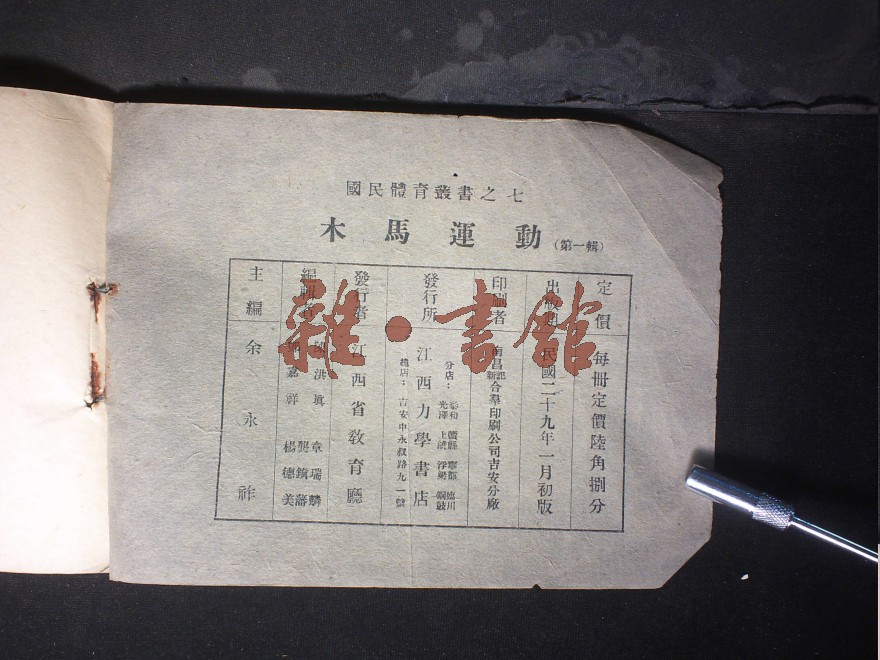 國民體育叢書之七
木馬運動(第一輯)
定價 每冊定價陸角捌分
民國二十九年一月初版
印刷者 南昌新記合羣印刷公司吉安分廠
發行所 江西力學書店
總店：吉安中永叔路九一號
分店：泰和 贛縣 寧都 臨川
光澤 上饒 浮梁 銅鼓
發行者 江西省教育廳
編輯者
洪 嘉祥 章瑞麟 龔鎮藩 楊德美
主編 余永祚
雜·書館